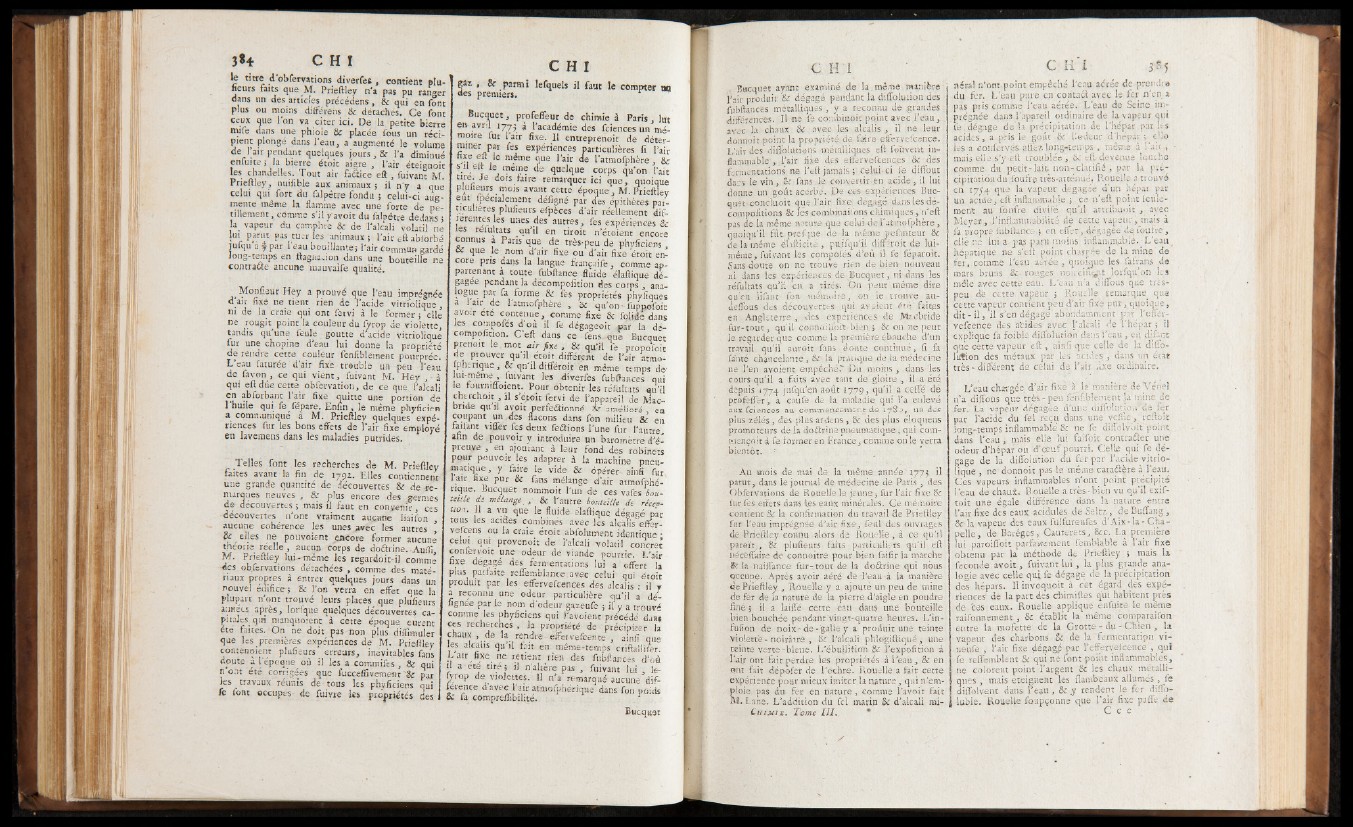 384 C H I
le titre d'obſervations diverſes, contient plu-
ſieurs faits que M. Prieſtley n'a pas pu ranger
dans un des articles précédens, & qui en ſont
plus ou moins différens & détachés. Ce ſont
ceux que l'on va citer ici. De la petite bierre
miſe dans une phiole & placée ſous un réci-
pient plongé dans l'eau, a augmenté le volume
de l'air pendant quelques jours, & l'a diminué
enſuite; la bierre étoit aigre, l'air éteignoit
les chandelles. Tout air factice eſt, ſuivant M.
Prieſtley, nuiſible aux animaux; il n'y a que
celui qui ſort du ſalpêtre fondu; celui-ci aug-
mente même la flamme avec une ſorte de pe-
tillement, comme s'il y avoit du ſalpêtre dedans;
la vapeur du camphre & de l'alcali volatil ne
lui parut pas tuer les animaux; l'air eſt abſorbé
juſqu'à par l'eau bouillante; l'air commun gardé
long-temps en ſtagnation dans une bouteille ne
contracte aucune mauvaiſe qualité.
Monſieur Hey a prouvé que l'eau imprégnée
d'air fixe ne tient rien de l'acide vitriolique,
ni de la craie qui ont ſervi à le former; elle
ne rougit point la couleur du ſyrop de violette,
tandis qu'une ſeule goutte d'acide vitriolique
ſur une chopine d'eau lui donne la propriété
de rendre cette couleur ſenſiblement pourprée.
L'eau ſaturée d'air fixe trouble un peu l'eau
de ſavon, ce qui vient, ſuivant M. Hey, à
qui eſt dûe cette obſervation, de ce que l'alcali
en abſorbant l'air fixe quitte une portion de
l'huile qui ſe ſépare. Enfin, le même phyſicien
a communiqué à M. Prieſtley quelques expé-
riences ſur les bons effets de l'air fixe employé
en lavemens dans les maladies putrides.
Telles ſont les recherches de M. Prieſtley
faites avant la fin de 1792. Elles contiennent
une grande quantité de découvertes & de re-
marques neuves, & plus encore des germes
de découvertes; mais il faut en convenir, ces
découvertes n'ont vraiment aucune liaiſon,
aucune cohérence les unes avec les autres,
& elles ne pouvoient encore former aucune
théorie réelle, aucun corps de doctrine. Auſſi,
M. Prieſtley lui-même les regardoit-il comme
des obſervations détachées, comme des maté-
riaux propres à entrer quelques jours dans un
nouvel édifice; & l'on verra en effet que la
plupart n'ont trouvé leurs places que pluſieurs
années après, lorſque quelques découvertes ca-
pitales qui manquoient à cette époque eurent
été faites. On ne doit pas non plus diſſimuler
que les premières expériences de M. Prieſtley
contenoient pluſieurs erreurs, inévitables ſans
doute à l'époque où il les a commiſes, & qui
n'ont été corrigées que ſucceſſivement & par
les travaux réunis de tous les phyſiciens qui
ſe ſont occupés de ſuivre les propriétés des
C H I
gaz, & parmi leſquels il faut le compter un
des premiers.
Bucquet, profeſſeur de chimie à Paris, lut
en avril 1773 à l'académie des ſciences un mé-
moire ſur l'air fixe. Il entreprenoit de déter-
miner par ſes expériences particulières ſi l'air
fixe eſt le même que l'air de l'atmoſphère, &
s'il eſt le même de quelque corps qu'on l'ait
tiré. Je dois faire remarquer ici que, quoique
pluſieurs mois avant cette époque, M. Prieſtley
eût ſpécialement déſigné par des épithètes par-
ticulières pluſieurs eſpèces d'air réellement dif-
férentes les unes des autres, ſes expériences &
les réſultats qu'il en tiroit n'étoient encore
connus à Paris que de très-peu de phyſiciens,
& que le nom d'air fixe ou d'air fixé étoit en-
core pris dans la langue françaiſe, comme ap-
partenant à toute ſubſtance fluide élaſtique dé-
gagée pendant la décompoſition des corps, ana-
logue par ſa forme & ſes propriétés phyſiques
à l'air de l'atmoſphère, & qu'on ſuppoſoit
avoir été contenue, comme fixe & ſolide dans
les compoſés d'où il ſe dégageoit par la dé-
compoſition. C'eſt dans ce ſens que Bucquet
prenoit le mot air fixe, & qu'il ſe propoſoit
de prouver qu'il étoit différent de l'air atmo-
ſphérique, & qu'il différoit en même temps de
lui-même, ſuivant les diverſes ſubſtances qui
le fourniſſoient. Pour obtenir les réſultats qu'il
cherchoit, il s'étoit ſervi de l'appareil de Mac-
bride qu'il avoit perfectionné & amélioré, en
coupant un des flacons dans ſon milieu & en
faiſant viſſer ſes deux ſections l'une ſur l'autre,
afin de pouvoir y introduire un barometre d'é-
preuve, en ajoutant à leur fond des robinets
pour pouvoir les adapter à la machine pneu-
matique, y faire le vide & opérer ainſi ſur
l'air fixe pur & ſans mélange d'air atmoſphé-
rique. Bucquet nommoit l'un de ces vaſes bou-
teille de mélange, & l'autre bouteille de récep-
tion. Il a vu que le fluide élaſtique dégagé par
tous les acides combinés avec les alcalis effer-
veſcens ou la craie étoit abſolument identique;
celui qui provenoit de l'alcali volatil concret
conſervoit une odeur de viande pourrie. L'air
fixe dégagé des fermentations lui a offert la
plus parfaite reſſemblance avec celui qui étoit
produit par les efferveſcences des alcalis: il y
a reconnu une odeur particulière qu'il a dé-
ſignée par le nom d'odeur gazeuſe; il y a trouvé
comme les phyſiciens qui l'avoient précédé dans
ces recherches, la propriété de précipiter la
chaux, de la rendre efferveſcente, ainſi que
les alcalis qu'il fait en même-temps criſtalliſer.
L'air fixe ne retient rien des ſubſtances d'où
il a été tiré; il n'altère pas, ſuivant lui, le-
ſyrop de violettes. Il n'a remarqué aucune dif-
férence d'avec l'air atmoſphérique dans ſon poids
& ſa compreſſibilité.
Bucquet
C H I
Bucquet ayant examiné de la même manière
l'air produit & dégagé pendant la diſſolution des
ſubſtances métalliques, y a reconnu de grandes
différences. Il ne ſe combinoit point avec l'eau,
avec la chaux & avec les alcalis, il ne leur
donnoit point la propriété de faire efferveſcence.
L'air des diſſolutions métalliques eſt ſouvent in-
flammable, l'air fixe des efferveſcences & des
fermentations ne l'eſt jamais; celui-ci ſe diſſout
dans le vin, & ſans le convertir en acide, il lui
donne un goût acerbe. De ces expériences Buc-
quet concluoit que l'air fixe dégagé dans les dé-
compoſitions & les combinaiſons chimiques, n'eſt
pas de la même nature que celui de l'atmoſphère,
quoiqu'il fût preſque de la même peſanteur &
de la même élaſticité, puiſqu'il différoit de lui-
même, ſuivant les compoſés d'où il ſe ſéparoit.
Sans doute on ne trouve rien de bien nouveau
ni dans les expériences de Bucquet, ni dans les
réſultats qu'il en a tirés. On peut même dire
qu'en liſant ſon mémoire, on le trouve au-
deſſous des découvertes qui avoient été faites
en Angleterre, des expériences de Macbride
ſur-tout, qu'il connoiſſoit bien; & on ne peut
le regarder que comme la première ébauche d'un
travail qu'il auroit ſans doute continué, ſi ſa
ſanté chancelante, & la pratique de la médecine
ne l'en avoient empêché. Du moins, dans les
cours qu'il a faits avec tant de gloire, il a été
depuis 1774 juſqu'en août 1779, qu'il a ceſſé de
profeſſer, à cauſe de la maladie qui l'a enlevé
aux ſciences au commencement de 1780, un des
plus zélés, des plus ardens, & des plus éloquens
promoteurs de la doctrine pneumatique, qui com-
mençoit à ſe former en France, comme on le verra
bientôt.
Au mois de mai de la même année 1773 il
parut, dans le journal de médecine de Paris, des
Obſervations de Rouelle le jeune, ſur l'air fixe &
ſur ſes effets dans les eaux minérales. Ce mémoire
contient & la confirmation du travail de Prieſtley
ſur l'eau imprégnée d'air fixe, ſeul des ouvrages
de Prieſtley connu alors de Rouelle, à ce qu'il
paroît, & pluſieurs faits particuliers qu'il eſt
néceſſaire de connoître pour bien ſaiſir la marche
& la naiſſance ſur-tout de la doctrine qui nous
occupe. Après avoir aéré de l'eau à la manière
de Prieſtley, Rouelle y a ajouté un peu de mine
de fer de la nature de la pierre d'aigle en poudre
fine; il a laiſſé cette eau dans une bouteille
bien bouchée pendant vingt-quatre heures. L'in-
fuſion de noix-de-galle y a produit une teinte
violette-noirâtre, & l'alcali phlogiſtiqué, une
teinte verte-bleue. L'ébulition & l'expoſition à
l'air ont fait perdre les propriétés à l'eau, & en
ont fait dépoſer de l'ochre. Rouelle a fait cette
expérience pour mieux imiter la nature, qui n'em-
ploie pas du fer en nature, comme l'avoit fait
M. Lane. L'addition du ſel marin & d'alcali mi-
CHIMIE. Tome III.
C H I 385
néral n'ont point empêché l'eau aérée de prendre
du fer. L'eau pure en contact avec le fer n'en a
pas pris comme l'eau aérée. L'eau de Seine im-
prégnée dans l'appareil ordinaire de la vapeur qui
ſe dégage de la précipitation de l'hépar par les
acides, a pris le goût & l'odeur d'hépar; elle
les a conſervés aſſez long-temps, même à l'air,
mais elle s'y eſt troublée, & eſt devenue louche
comme du petit-lait non-clarifié, par la pré-
cipitation du ſoufre très-atténué. Rouelle a trouvé
en 1754 que la vapeur dégagée d'un hépar par
un acide, eſt inflammable; ce n'eſt point ſeule-
ment au ſoufre diviſé qu'il attribuoit, avec
Meyer, l'inflammabilité de cette vapeur, mais à
ſa propre ſubſtance; en effet, dégagée de ſoufre,
elle ne lui a pas paru moins inflammable. L'eau
hépatique ne s'eſt point chargée de la mine de
fer, comme l'eau aérée, quoique les ſafrans de
mars bruns & rouges noirciſſent lorſqu'on les
mêle avec cette eau. L'eau n'a diſſous que très-
peu de cette vapeur; Rouelle remarque que
cette vapeur contient peu d'air fixe pur, quoique,
dit-il, il s'en dégage abondamment par l'effer-
veſcence des acides avec l'alcali de l'hépar; il
explique ſa foible diſſolution dans l'eau, en diſant
que cette vapeur eſt, ainſi que celle de la diſſo-
lution des métaux par les acides, dans un état
très-différent de celui de l'air fixe ordinaire.
L'eau chargée d'air fixé à la manière de Venel
n'a diſſous que très-peu ſenſiblement la mine de
fer. La vapeur dégagée d'une diſſolution de fer
par l'acide du ſel reçu dans une veſſie, reſtoit
long-temps inflammable & ne ſe diſſolvoit point
dans l'eau, mais elle lui faiſoit contracter une
odeur d'hépar ou d'œuf pourri. Celle qui ſe dé-
gage de la diſſolution du fer par l'acide vitrio-
lique, ne donnoit pas le même caractère à l'eau.
Ces vapeurs inflammables n'ont point précipité
l'eau de chaux. Rouelle a très-bien vu qu'il exiſ-
toit une égale différence dans la nature entre
l'air fixe des eaux acidules de Seltz, de Buſſang,
& la vapeur des eaux ſulfureuſes d'Aix-la-Cha-
pelle, de Baréges, Cauterets, &c. La première
lui paroiſſoit parfaitement ſemblable à l'air fixe
obtenu par la méthode de Prieſtley; mais la
ſeconde avoit, ſuivant lui, la plus grande ana-
logie avec celle qui ſe dégage de la précipitation
des hépars. Il invoquoit à cet égard des expé-
riences de la part des chimiſtes qui habitent près
de ces eaux. Rouelle applique enſuite le même
raiſonnement, & établit la même comparaiſon
entre la mofette de la Grotte-du-Chien, la
vapeur des charbons & de la fermentation vi-
neuſe, l'air fixe dégagé par l'efferveſcence, qui
ſe reſſemblent & qui ne ſont point inflammables,
ne colorent point l'argent & les chaux métalli-
ques, mais éteignent les flambeaux allumés, ſe
diſſolvent dans l'eau, & y rendent le fer diſſo-
luble. Rouelle ſoupçonne que l'air fixe paſſe de
C c c